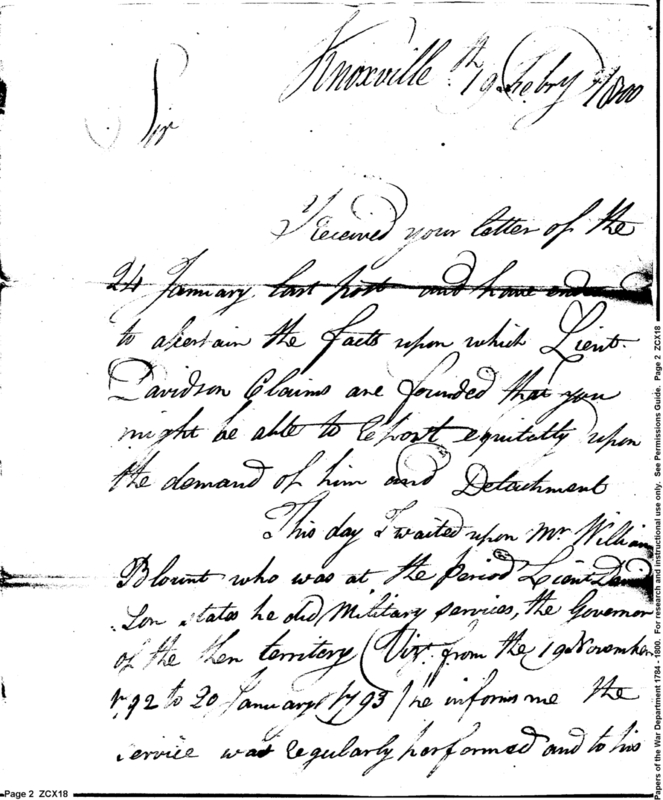 Knoxville 19th Feby 1800
Sir
I received your letter of the
24 January last post and have
to ascertain the facts upon which Lieut.
Davidson Claims are founded that you
might be able to report equitably upon
the demand of him and Detachment
This day I waited upon Mr William
Blount who was at the period Lieut David
son states he did Military services, the Governor
of the then territory (Vizt. from the 19 November
1792 to 20 January 1793) he informs me the
service was regularly performed and to his
Page 2 ZCX18
Papers of the War Department 1784 - 1800. For research and instructional use only. See Permissions Guide. Page 2 ZCX18